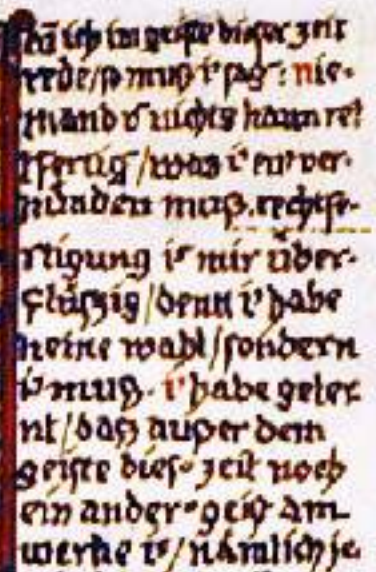 ich im geiste dieser zeit
rede/so muß i' sag': nie-
mand u' nichts kann re
tfertig'/was i' eu' ver-
künden muß. rechtfe-
rtigung is' mir über-
flüssig/denn i' habe
keine wahl/sondern
i' muß. i' habe geler
nt/daß außer dem
geiste dies' zeit noch
ein ander' geist am
werke is'/nämlich je